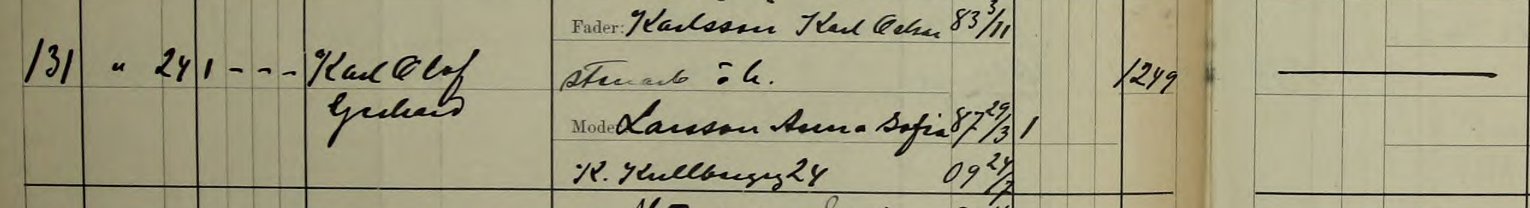 Fader: Karlsson Karl Oskar 83 3/11
131 " 24 1 - - - Karl Olof 1249
Gerhard
Moder Larsson Anna Sofia 87 29/3 1
K. Kullbergsg 24 09 24/7